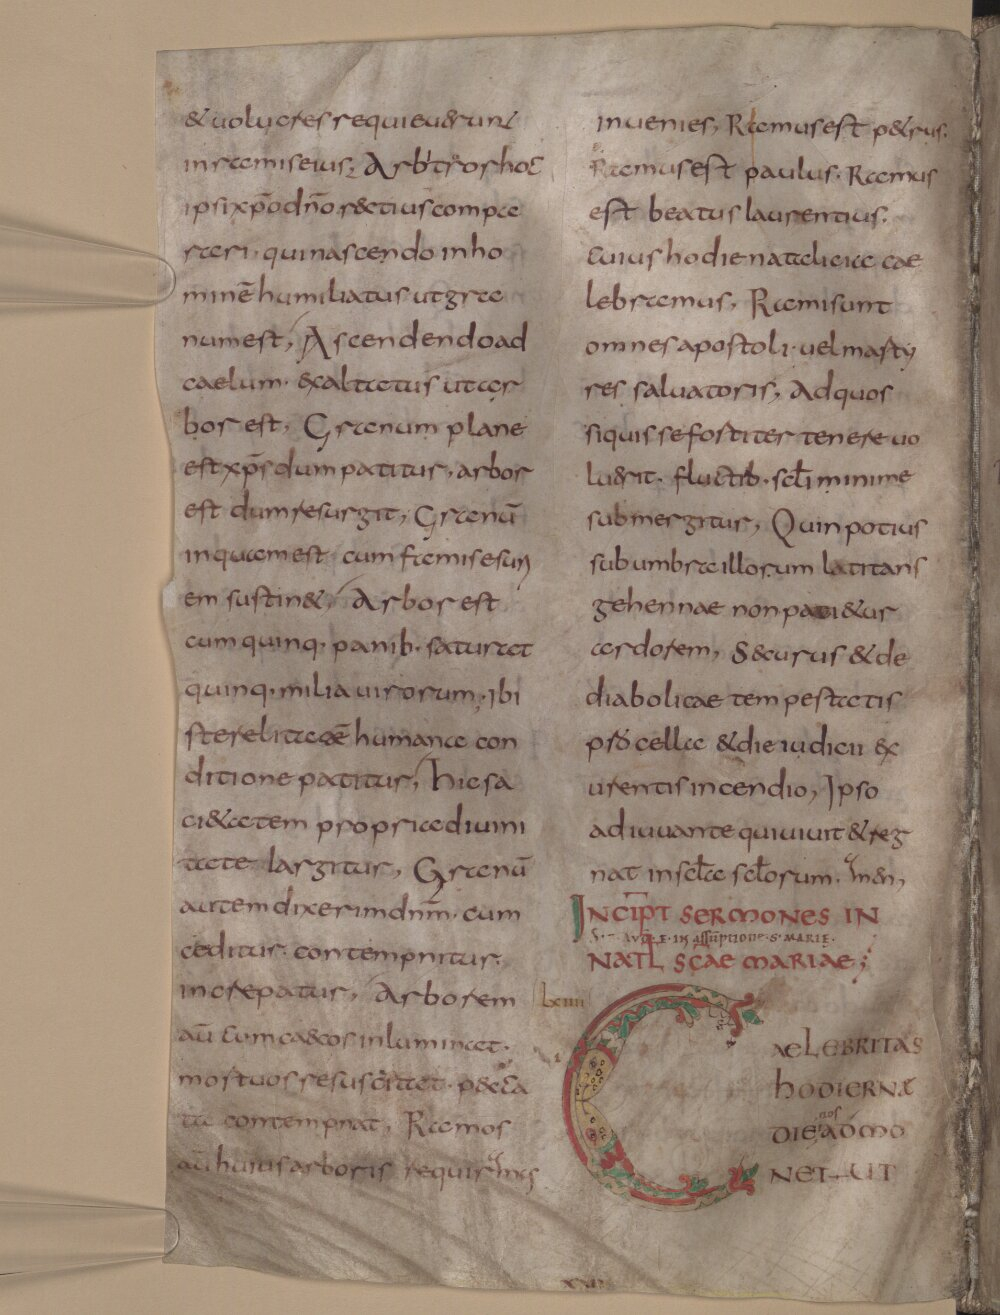 & uolucres requieuerunt
in ramis eius; Arbitror hoc
ipsi xp̄o dn̄o rectius compa
rari · qui nascendo in ho
minē humiliatus ut gra
num est, Ascendendo ad
caelum · exaltatus ut ar
bor est, Granum plane
est xp̄s dum patitur, arbor
est dum resurgit, Granū
inquam est · cum famis esuri
em sustin&, Arbor est
cum quinq· panib· saturat
quinq· milia uirorum, Ibi
sterelitatē humanae con
ditione patitur, hic sa
ci&atem propria diuini
tate largitur, Granū
autem dixerim dnm̄ · cum
ceditur · contempnitur ·
increpatur, Arborem
aū cum caecos inluminat ·
mortuos resuscitat · pecca
ta contempnat, Ramos
aū huius arboris requiramus
inuenies, Ramus est p&rus.
Ramus est paulus. Ramus
est beatus laurentius.
Cuius hodie natalicia cae
lebramus, Rami sunt
omnes apostoli · uel marty
res saluatoris, Ad quos
si quis se fortiter tenere uo
luerit · fluctib· sc̄li minime
submergitur, Quin potius
sub umbra illorum latitans
gehennae non pati&ur
ardorem, Securus & de
diabolicae tempestatis
procella & die iudicii ex
urentis incendio, Ipso
adiuuante qui uiuit & reg
nat in sc̄la sc̄lorum. Amen,
INCIPT SERMONES IN
S. AUG. E · IN assūptione · S · MARIĘ.
NATL SCAE MARIAE;
Lxiiii
CAELEBRITAS
hODIERNA
nos
DIEI ADMO
NET UT